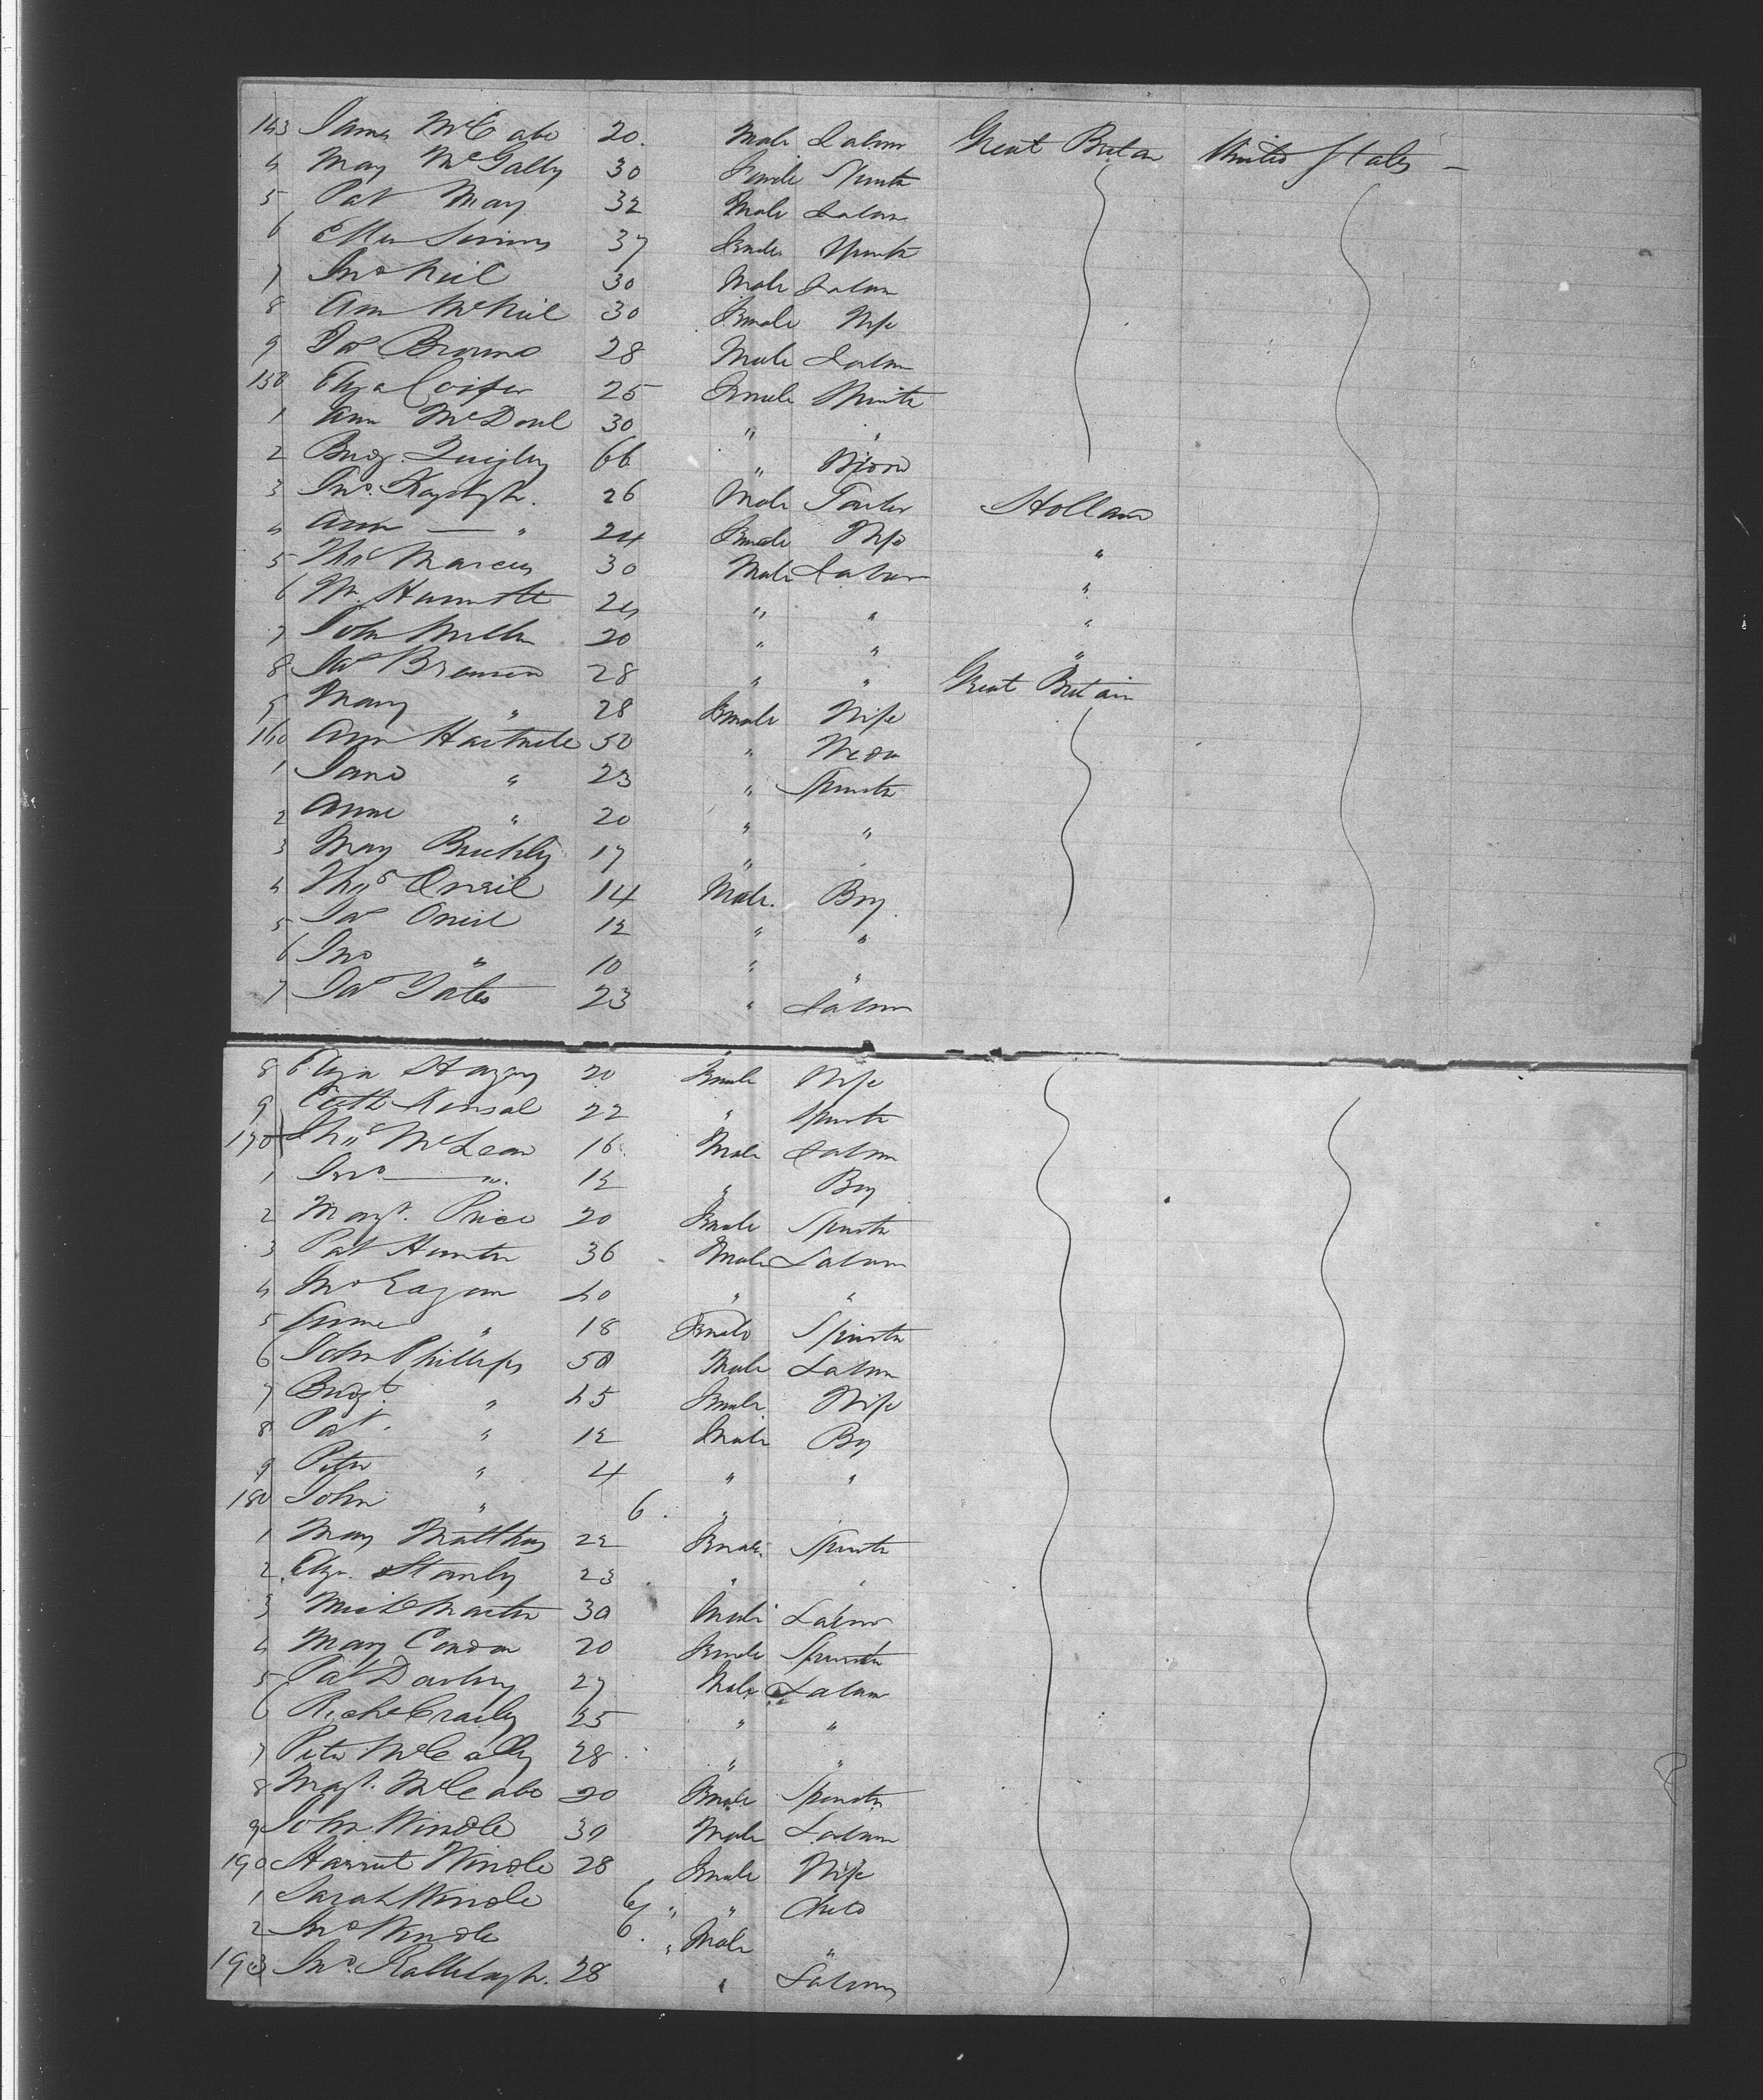 143 James McCabe 20. Male Labour Great Britain United States —
4 Mary McGally 30 Female Spinster
5 Pat May 32 Male Labour
6 Ellen Simms 37 Female Spinster
7 Jno Neil 30 Male Labour
8 Ann McNeil 30 Female Wife
9 Jas Browne 28 Male Labour
150 Eliza 25 Female Spinster
1 Ann McDonl 30 " "
2 Bridg. Quigley 66 " Widow
3 Jno. 26 Male Holland
4 Ann — " 24 Female Wife "
5 Thos Marcus 30 Male Labour "
6 Wm 24 " " "
7 John Miller 20 " " "
8 Jas Brennan 28 " " Great Britain
9 Mary " 28 Female Wife
160 Ann Hartnele 50 " Widow
1 Jane " 23 " Spinster
2 Anne " 20 " "
3 May Buckley 17 "
4 Thos Oneil 14 Male. Boy
5 Jas Oneil 12 " "
6 Jno " 10 " "
7 Jas Yates 23 " Labour
8 Eliza 20 Female Wife
9 Cath Kinsal 22 " Spinster
170 Thos McLean 16 Male Labour
1 Jno — " 12 " Boy
2 Margt. Price 20 Female Spinster
3 Pat Hunter 36 Male Labour
4 Jno Eagan 40 " "
5 Anne " 18 Female Spinster
6 John Phillips 50 Male Labour
7 Bridgt. " 45 Female Wife
8 Pat. " 12 Male Boy
9 Peter " 4 " "
180 John " 6 "
1 Mary Matthews 22 Female Spinster
2 Eliza. Stanley 23 " "
3 Mich Martin 30 Male Labour
4 Mary Condon 20 Female Spinster
5 Pat 27 Male Labour
6 Richd Crailey 25 " "
7 Peter McCally 28 " "
8 Magt. McCabe 20 Female Spinster
9 John Windle 30 Male Labour
190 Harriet Windle 28 Female Wife
1 Sarah Windle " " Child
2 Jno Windle 6 " Male "
193 Jno. 28 " Labour